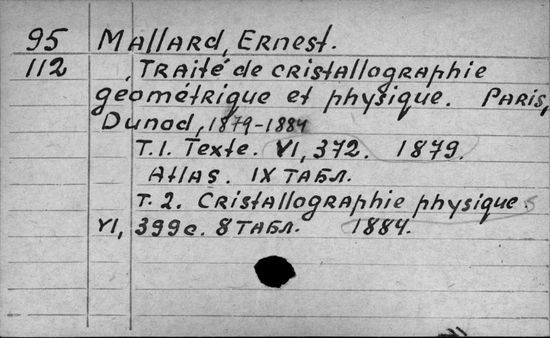 95 Mallard, Ernest.
112 Traité de cristallographie
géométrique et physique. Paris,
Dunod, 1879-1884
T.1. Texte. VI, 372. 1879.
Atlas. IX табл.
T. 2. Cristallographie physique.
VI, 399c. 8 табл. 1884.